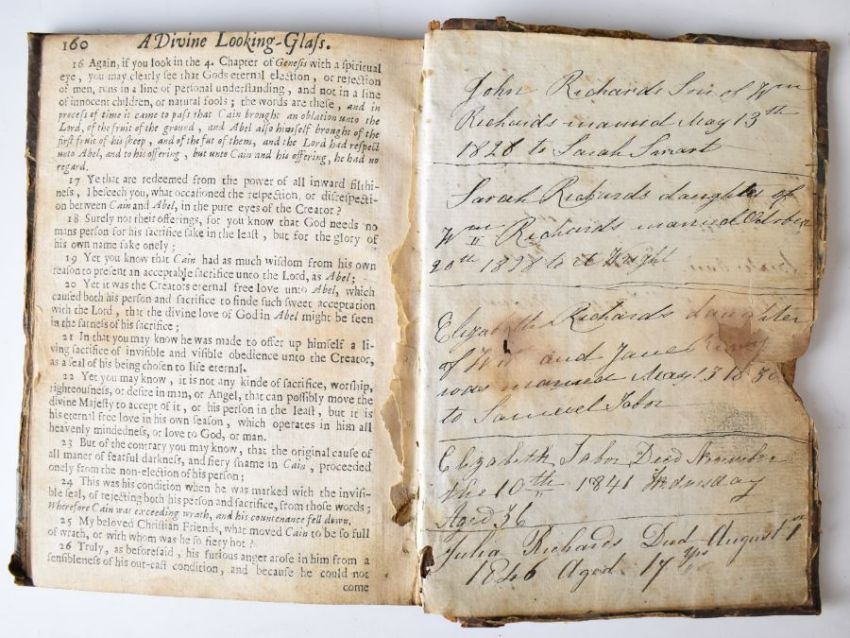 160 A Divine Looking-Glaſs.
16 Again, if you look in the 4. Chapter of Geneſis with a ſpiritual
eye, you may clearly ſee that Gods eternal election, or rejection
of men, runs in a line of perſonal underſtanding, and not in a line
of innocent children, or natural fools; the words are theſe, and in
proceſs of time it came to paſs that Cain brought an oblation unto the
Lord, of the fruit of the ground, and Abel alſo himſelf brought of the
firſt fruit of his ſheep, and of the fat of them, and the Lord had reſpect
unto Abel, and to his offering, but unto Cain and his offering, he had no
regard.
17 Ye that are redeemed from the power of all inward filthi-
neſs, I beſeech you, what occaſioned the reſpection, or diſreſpecti-
on between Cain and Abel, in the pure eyes of the Creator?
18 Surely not their offerings, for you know that God needs no
mans perſon for his ſacrifice ſake in the leaſt, but for the glory of
his own name ſake onely;
19 Yet you know that Cain had as much wisdom from his own
reaſon to preſent an acceptable ſacrifice unto the Lord, as Abel;
20 Yet it was the Creators eternal free love unto Abel, which
cauſed both his perſon and ſacrifice to finde ſuch ſweet acceptation
with the Lord, that the divine love of God in Abel might be ſeen
in the fatneſs of his ſacrifice;
21 In that you may know he was made to offer up himſelf a li-
ving ſacrifice of inviſible and viſible obedience unto the Creator,
as a ſeal of his being choſen to life eternal.
22 Yet you may know, it is not any kinde of ſacrifice, worſhip,
righteouſneſs, or deſire in man, or Angel, that can poſſibly move the
divine Majeſty to accept of it, or his perſon in the leaſt, but it is
his eternal free love in his own ſeaſon, which operates in him all
heavenly mindedneſs, or love to God, or man.
23 But of the contrary you may know, that the original cauſe of
all maner of fearful darkneſs, and fiery ſhame in Cain, proceeded
onely from the non-election of his perſon;
24 This was his condition when he was marked with the inviſi-
ble ſeal, of rejecting both his perſon and ſacrifice, from thoſe words;
Wherefore Cain was exceeding wrath, and his countenance fell down.
25 My beloved Chriſtian Friends, what moved Cain to be ſo full
of wrath, or with whom was he ſo fiery hot?
26 Truly, as beforeſaid, his furious anger aroſe in him from a
ſenſibleneſs of his our-caſt condition, and becauſe he could not
come
John Richards Son of Wm
Richards married May 13th
1828 to Sarah
Sarah Richards daughter of
Wm Richards married October
20th 1828 to Wright
Elizabeth Richards daughter
of Wm and Jane
was married May 13 1830
to Samuel Tabor
Elizabeth Tabor Died November
the 10th 1841 Wednsday
Aged 36
Julia Richards Died August 1
1846 Aged 17 yrs